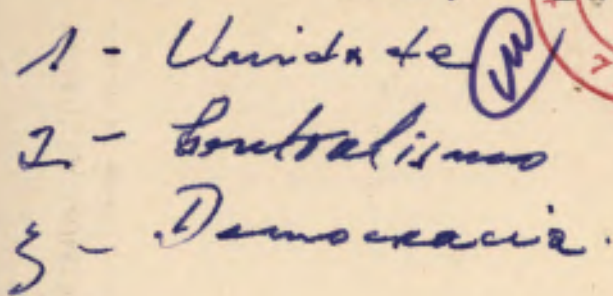 1 - Unidade
2 - Centralismo
3 - Democracia.